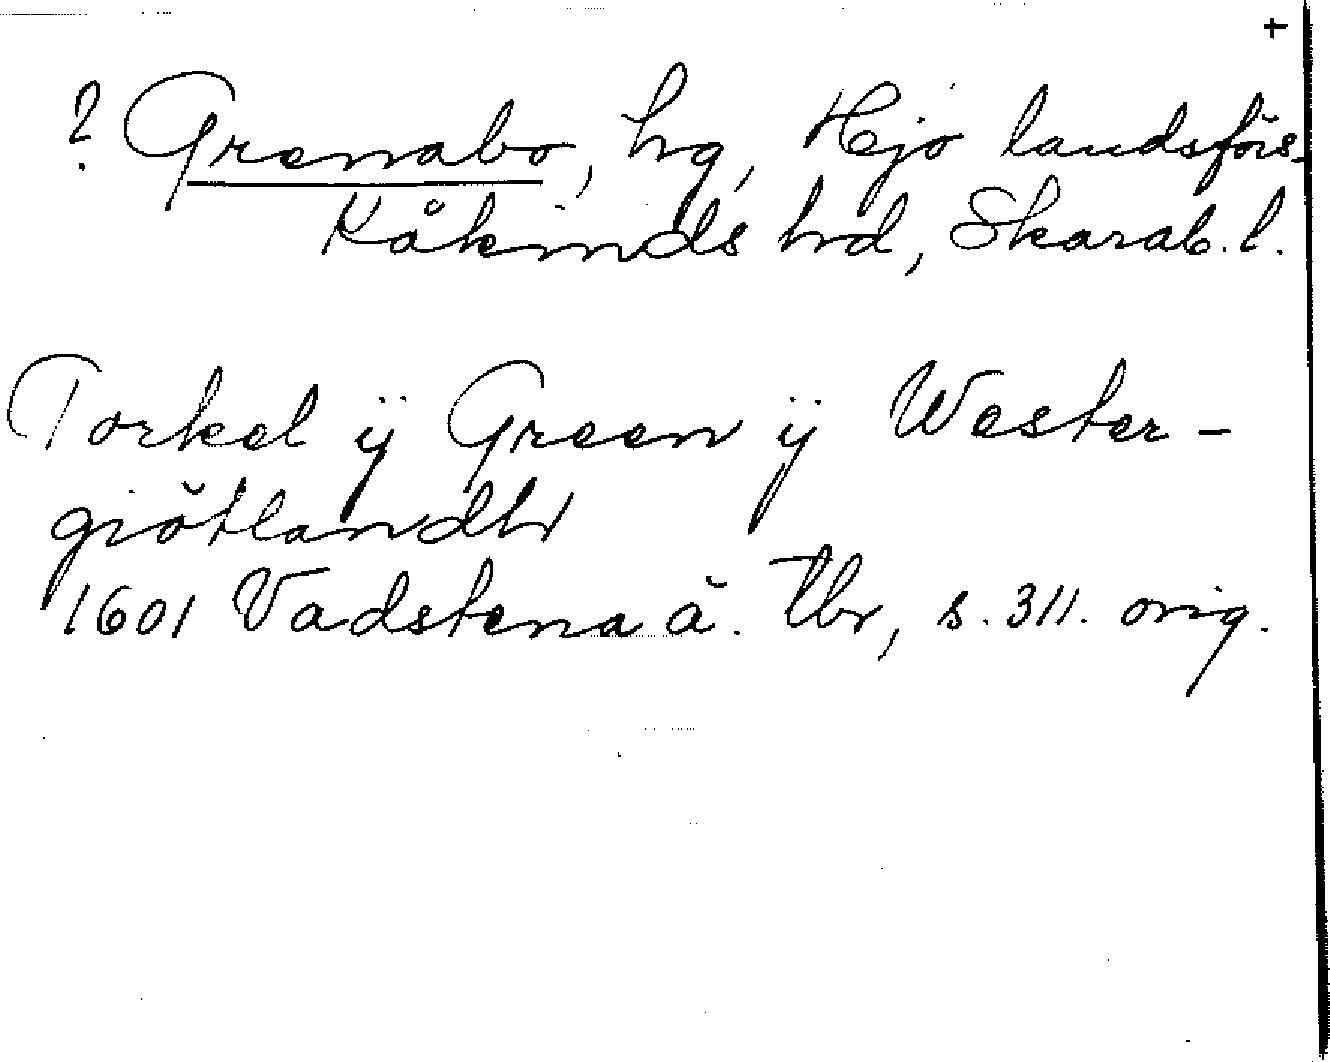 +
? Grenabo, hg, Hjo landsförs.
Kåkinds hd, Skarab. l.
Torkel ÿ Green ÿ Wester-
giötlandh
1601 Vadstena ä. tbr, s. 311. orig.